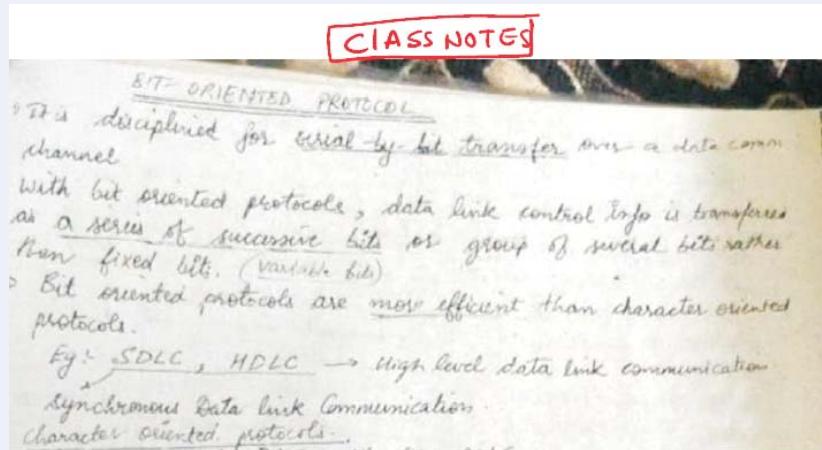 CLASS NOTES
BIT- ORIENTED PROTOCOL
It is disciplined for serial-by-bit transfer over a data comm
channel
With bit oriented protocols, data link control info is transferred
as a series of successive bits or group of several bits rather
than fixed bits. (variable bits)
Bit oriented protocols are more efficient than character oriented
protocols.
Eg:- SDLC, HDLC → High level data link communication
Synchronous Data link Communication.
Character oriented protocols.